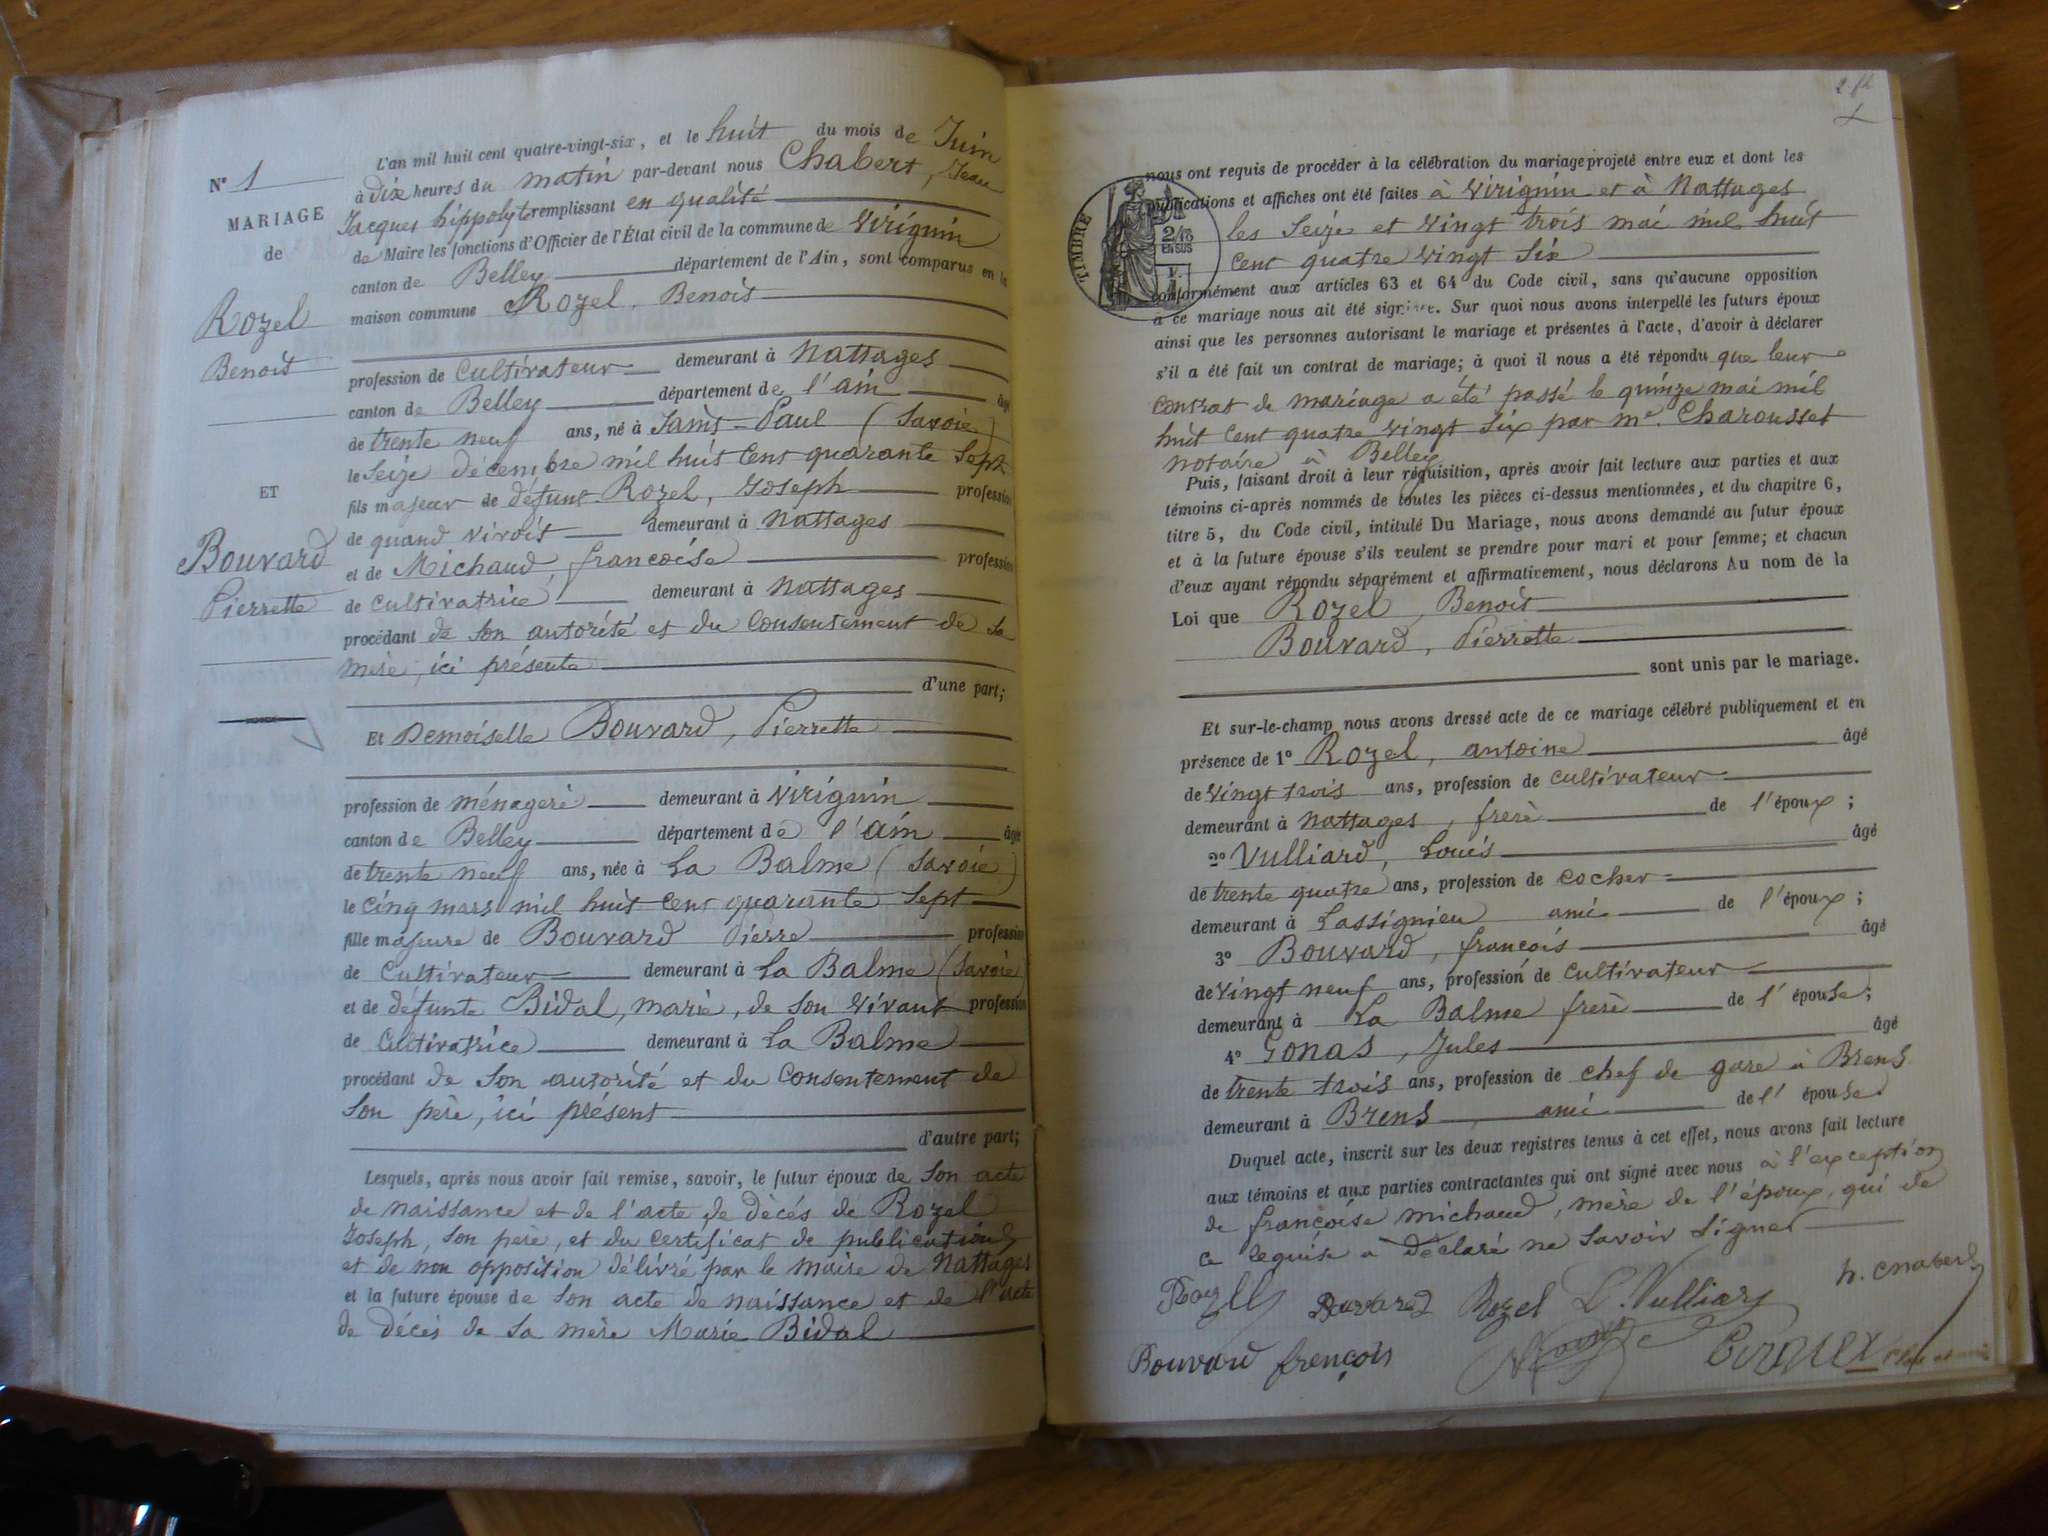 N° 1
MARIAGE
de
Rozel
Benoit
ET
Bouvard
Pierrette
L'an mil huit cent quatre-vingt-six, et le huit du mois de Juin
à dix heures du matin par-devant nous Chabert, Jean
Jacques hippolyte remplissant en qualité
de Maire les fonctions d'Officier de l'État civil de la commune de Virignin
canton de Belley département de l'Ain, sont comparus en la
maison commune Rozel, Benoit
profession de Cultivateur demeurant à Nattages
canton de Belley département de l'ain âgé
de trente neuf ans, né à Saint-Paul (Savoie)
le Seize décembre mil huit cent quarante Sept
fils majeur de défunt Rozel, Joseph profession
de quand vivoit demeurant à Nattages
et de Michaud, francoise profession
de cultivatrice demeurant à Nattages
procédant de son autorité et du Consentement de sa
mère, ici présente
d'une part;
Et Demoiselle Bouvard, Pierrette
profession de ménagère demeurant à Virignin
canton de Belley département de l'ain âgée
de trente neuf ans, née à La Balme (Savoie)
le cinq mars mil huit cent quarante Sept
fille majeure de Bouvard Pierre profession
de Cultivateur demeurant à La Balme (Savoie)
et de défunte Bidal, marie, de son vivant profession
de Cultivatrice demeurant à La Balme
procédant de son autorité et du Consentement de
son père, ici présent
d'autre part;
Lesquels, après nous avoir fait remise, savoir, le futur époux de son acte
de naissance et de l'acte de décès de Rozel
Joseph, son père, et du certificat de publications
et de non opposition délivré par le Maire de Nattages
et la future épouse de son acte de naissance et de l'acte
de décès de sa mère Marie Bidal
nous ont requis de procéder à la célébration du mariage projeté entre eux et dont les
publications et affiches ont été faites à Virignin et à Nattages
TIMBRE
2/10
EN SUS
les Seize et Vingt trois mai mil huit
cent quatre vingt Six
conformément aux articles 63 et 64 du Code civil, sans qu'aucune opposition
à ce mariage nous ait été signifiée. Sur quoi nous avons interpellé les futurs époux
ainsi que les personnes autorisant le mariage et présentes à l'acte, d'avoir à déclarer
s'il a été fait un contrat de mariage; à quoi il nous a été répondu que leur
contrat de mariage a été passé le quinze mai mil
huit cent quatre vingt six par me. Charousset
notaire à Belley
Puis, faisant droit à leur réquisition, après avoir fait lecture aux parties et aux
témoins ci-après nommés de toutes les pièces ci-dessus mentionnées, et du chapitre 6,
titre 5, du Code civil, intitulé Du Mariage, nous avons demandé au futur époux
et à la future épouse s'ils veulent se prendre pour mari et pour femme; et chacun
d'eux ayant répondu séparément et affirmativement, nous déclarons Au nom de la
Loi que Rozel, Benoit
Bouvard, Pierrette
sont unis par le mariage.
Et sur-le-champ nous avons dressé acte de ce mariage célébré publiquement et en
présence de 1° Rozel, antoine âgé
de Vingt trois ans, profession de cultivateur
demeurant à Nattages, frère de l'époux;
2° Vulliard, Louis âgé
de trente quatre ans, profession de cocher
demeurant à Lassignieu ami de l'époux;
3° Bouvard, francois âgé
de Vingt neuf ans, profession de cultivateur
demeurant à La Balme frère de l'épouse;
4° Gonas, Jules âgé
de trente trois ans, profession de chef de gare à Brens
demeurant à Brens, ami de l'épouse
Duquel acte, inscrit sur les deux registres tenus à cet effet, nous avons fait lecture
aux témoins et aux parties contractantes qui ont signé avec nous à l'exception
de françoise michaud, mère de l'époux, qui de
ce requise a déclaré ne savoir signer
Bouvard Rozel L. Vulliard h. chabert
Bouvard françois